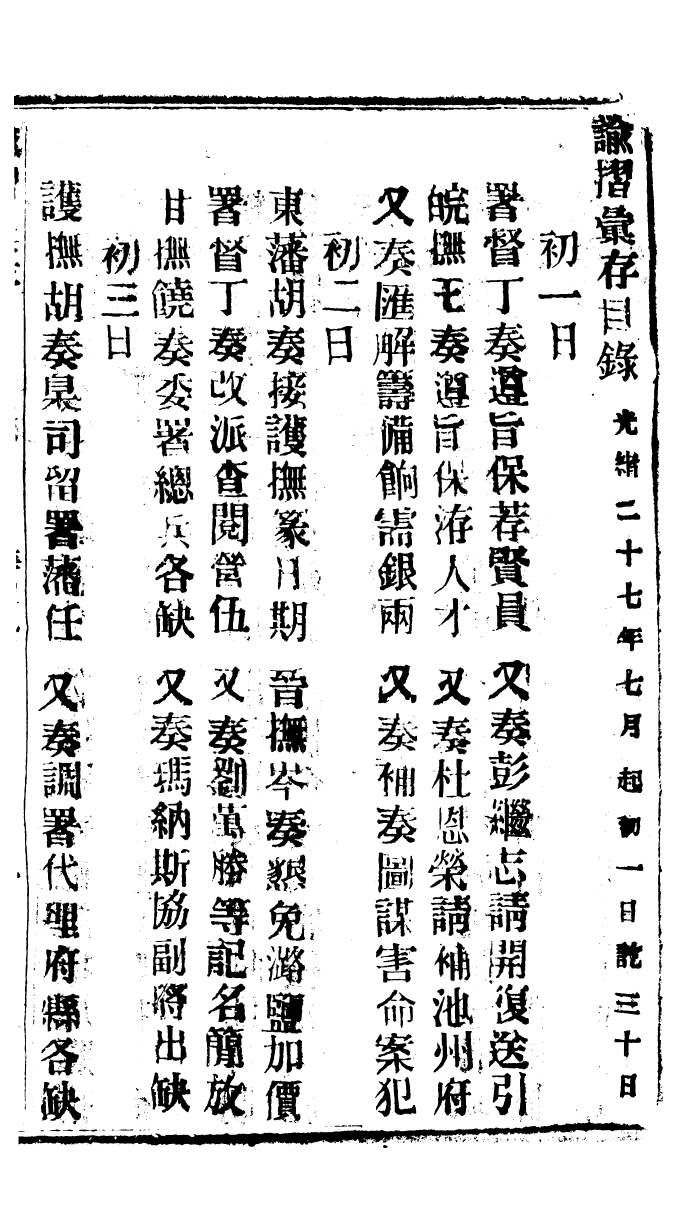 諭摺彙存目錄 光緒二十七年七月起初一日訖三十日
初一日
署督丁奏遵旨保荐賢員 又奏彭繼志請開復送引
皖撫王奏遵旨保洊人才 又奏杜恩榮請補池州府
又奏匯解籌備餉需銀兩 又奏補奏圖謀害命案犯
初二日
東藩胡奏接護撫篆日期 晉撫岑奏懇免潞鹽加價
署督丁奏改派查閱營伍 又奏劉萬勝等記名簡放
甘撫饒奏委署總兵各缺 又奏瑪納斯協副將出缺
初三日
護撫胡奏臬司留署藩任 又奏調署代理府縣各缺